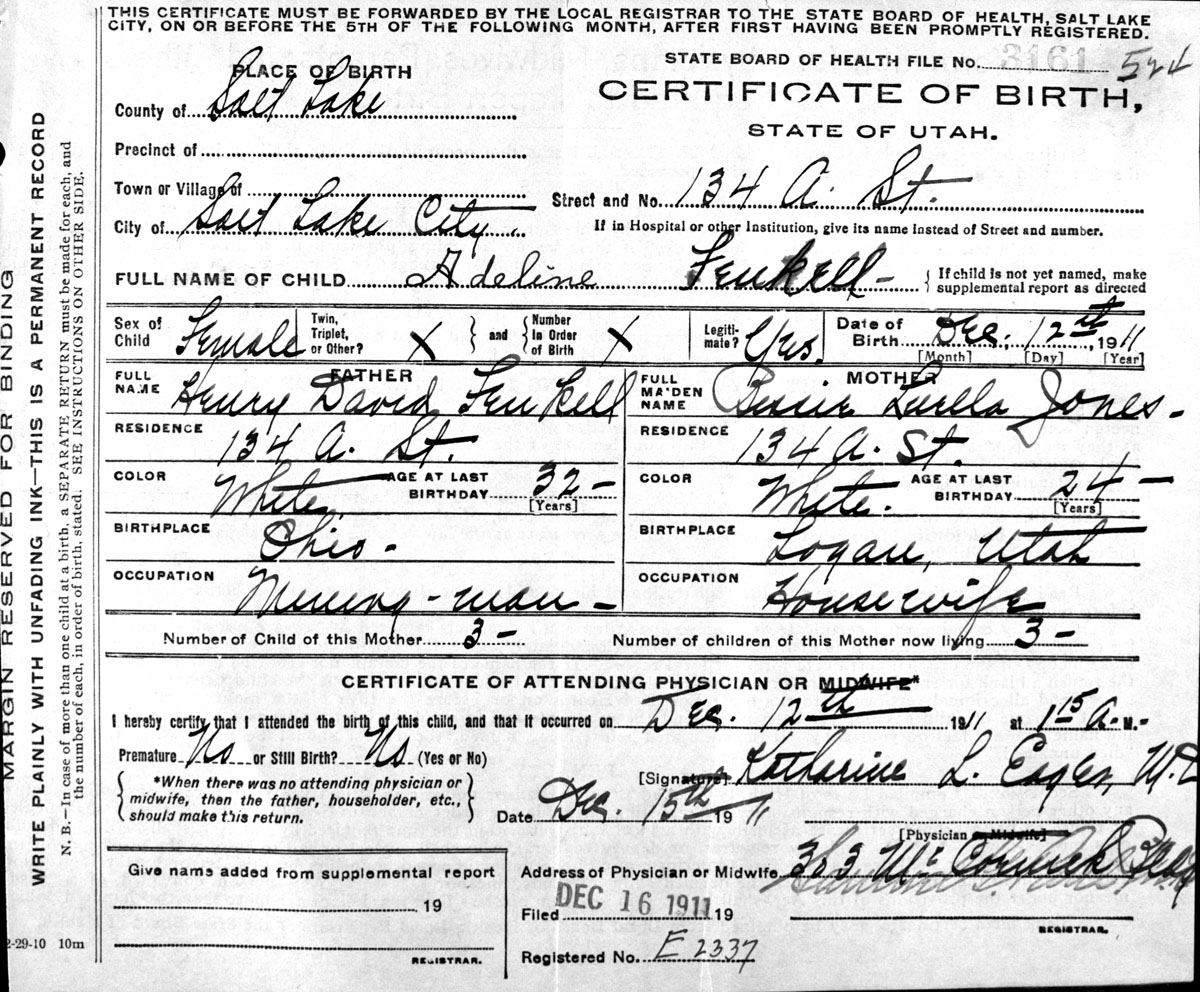 THIS CERTIFICATE MUST BE FORWARDED BY THE LOCAL REGISTRAR TO THE STATE BOARD OF HEALTH, SALT LAKE
CITY, ON OR BEFORE THE 5TH OF THE FOLLOWING MONTH, AFTER FIRST HAVING BEEN PROMPTLY REGISTERED.
STATE BOARD OF HEALTH FILE No. 3161 524
PLACE OF BIRTH
CERTIFICATE OF BIRTH,
STATE OF UTAH.
County of Salt Lake
Precinct of
Town or Village of
Street and No. 134 A. St.
City of Salt Lake City
If in Hospital or other Institution, give its name instead of Street and number.
FULL NAME OF CHILD Adeline Fenkell - { If child is not yet named, make
supplemental report as directed
Sex of Child Female
Twin, Triplet, or Other? X } and { Number in Order of Birth X
Legiti-mate? Yes.
Date of Birth Dec. 12th, 1911
[Month] [Day] [Year]
FATHER
FULL NAME Henry David Fenkell
RESIDENCE 134 A. St.
COLOR White. AGE AT LAST BIRTHDAY 32 - [Years]
BIRTHPLACE Ohio -
OCCUPATION Mining man -
MOTHER
FULL MAIDEN NAME Bessie Luella Jones -
RESIDENCE 134 A. St.
COLOR White. AGE AT LAST BIRTHDAY 24 - [Years]
BIRTHPLACE Logan, Utah
OCCUPATION Housewife
Number of Child of this Mother 3 - Number of children of this Mother now living 3 -
CERTIFICATE OF ATTENDING PHYSICIAN OR MIDWIFE*
I hereby certify that I attended the birth of this child, and that it occurred on Dec. 12th 1911 at 1 15 A. M.-
Premature No or Still Birth? No (Yes or No)
{ *When there was no attending physician or
midwife, then the father, householder, etc.,
should make this return. }
[Signature] Katharine L. Eagen, M.D
Date Dec. 15th 1911
[Physician or Midwife]
Address of Physician or Midwife 363 McCornick Bldg
Give name added from supplemental report
19
REGISTRAR.
Filed DEC 16 1911 19
REGISTRAR.
Registered No. E 2337
2-29-10 10m
MARGIN RESERVED FOR BINDING
WRITE PLAINLY WITH UNFADING INK—THIS IS A PERMANENT RECORD
N. B.—In case of more than one child at a birth, a SEPARATE RETURN must be made for each, and
the number of each, in order of birth, stated. SEE INSTRUCTIONS ON OTHER SIDE.